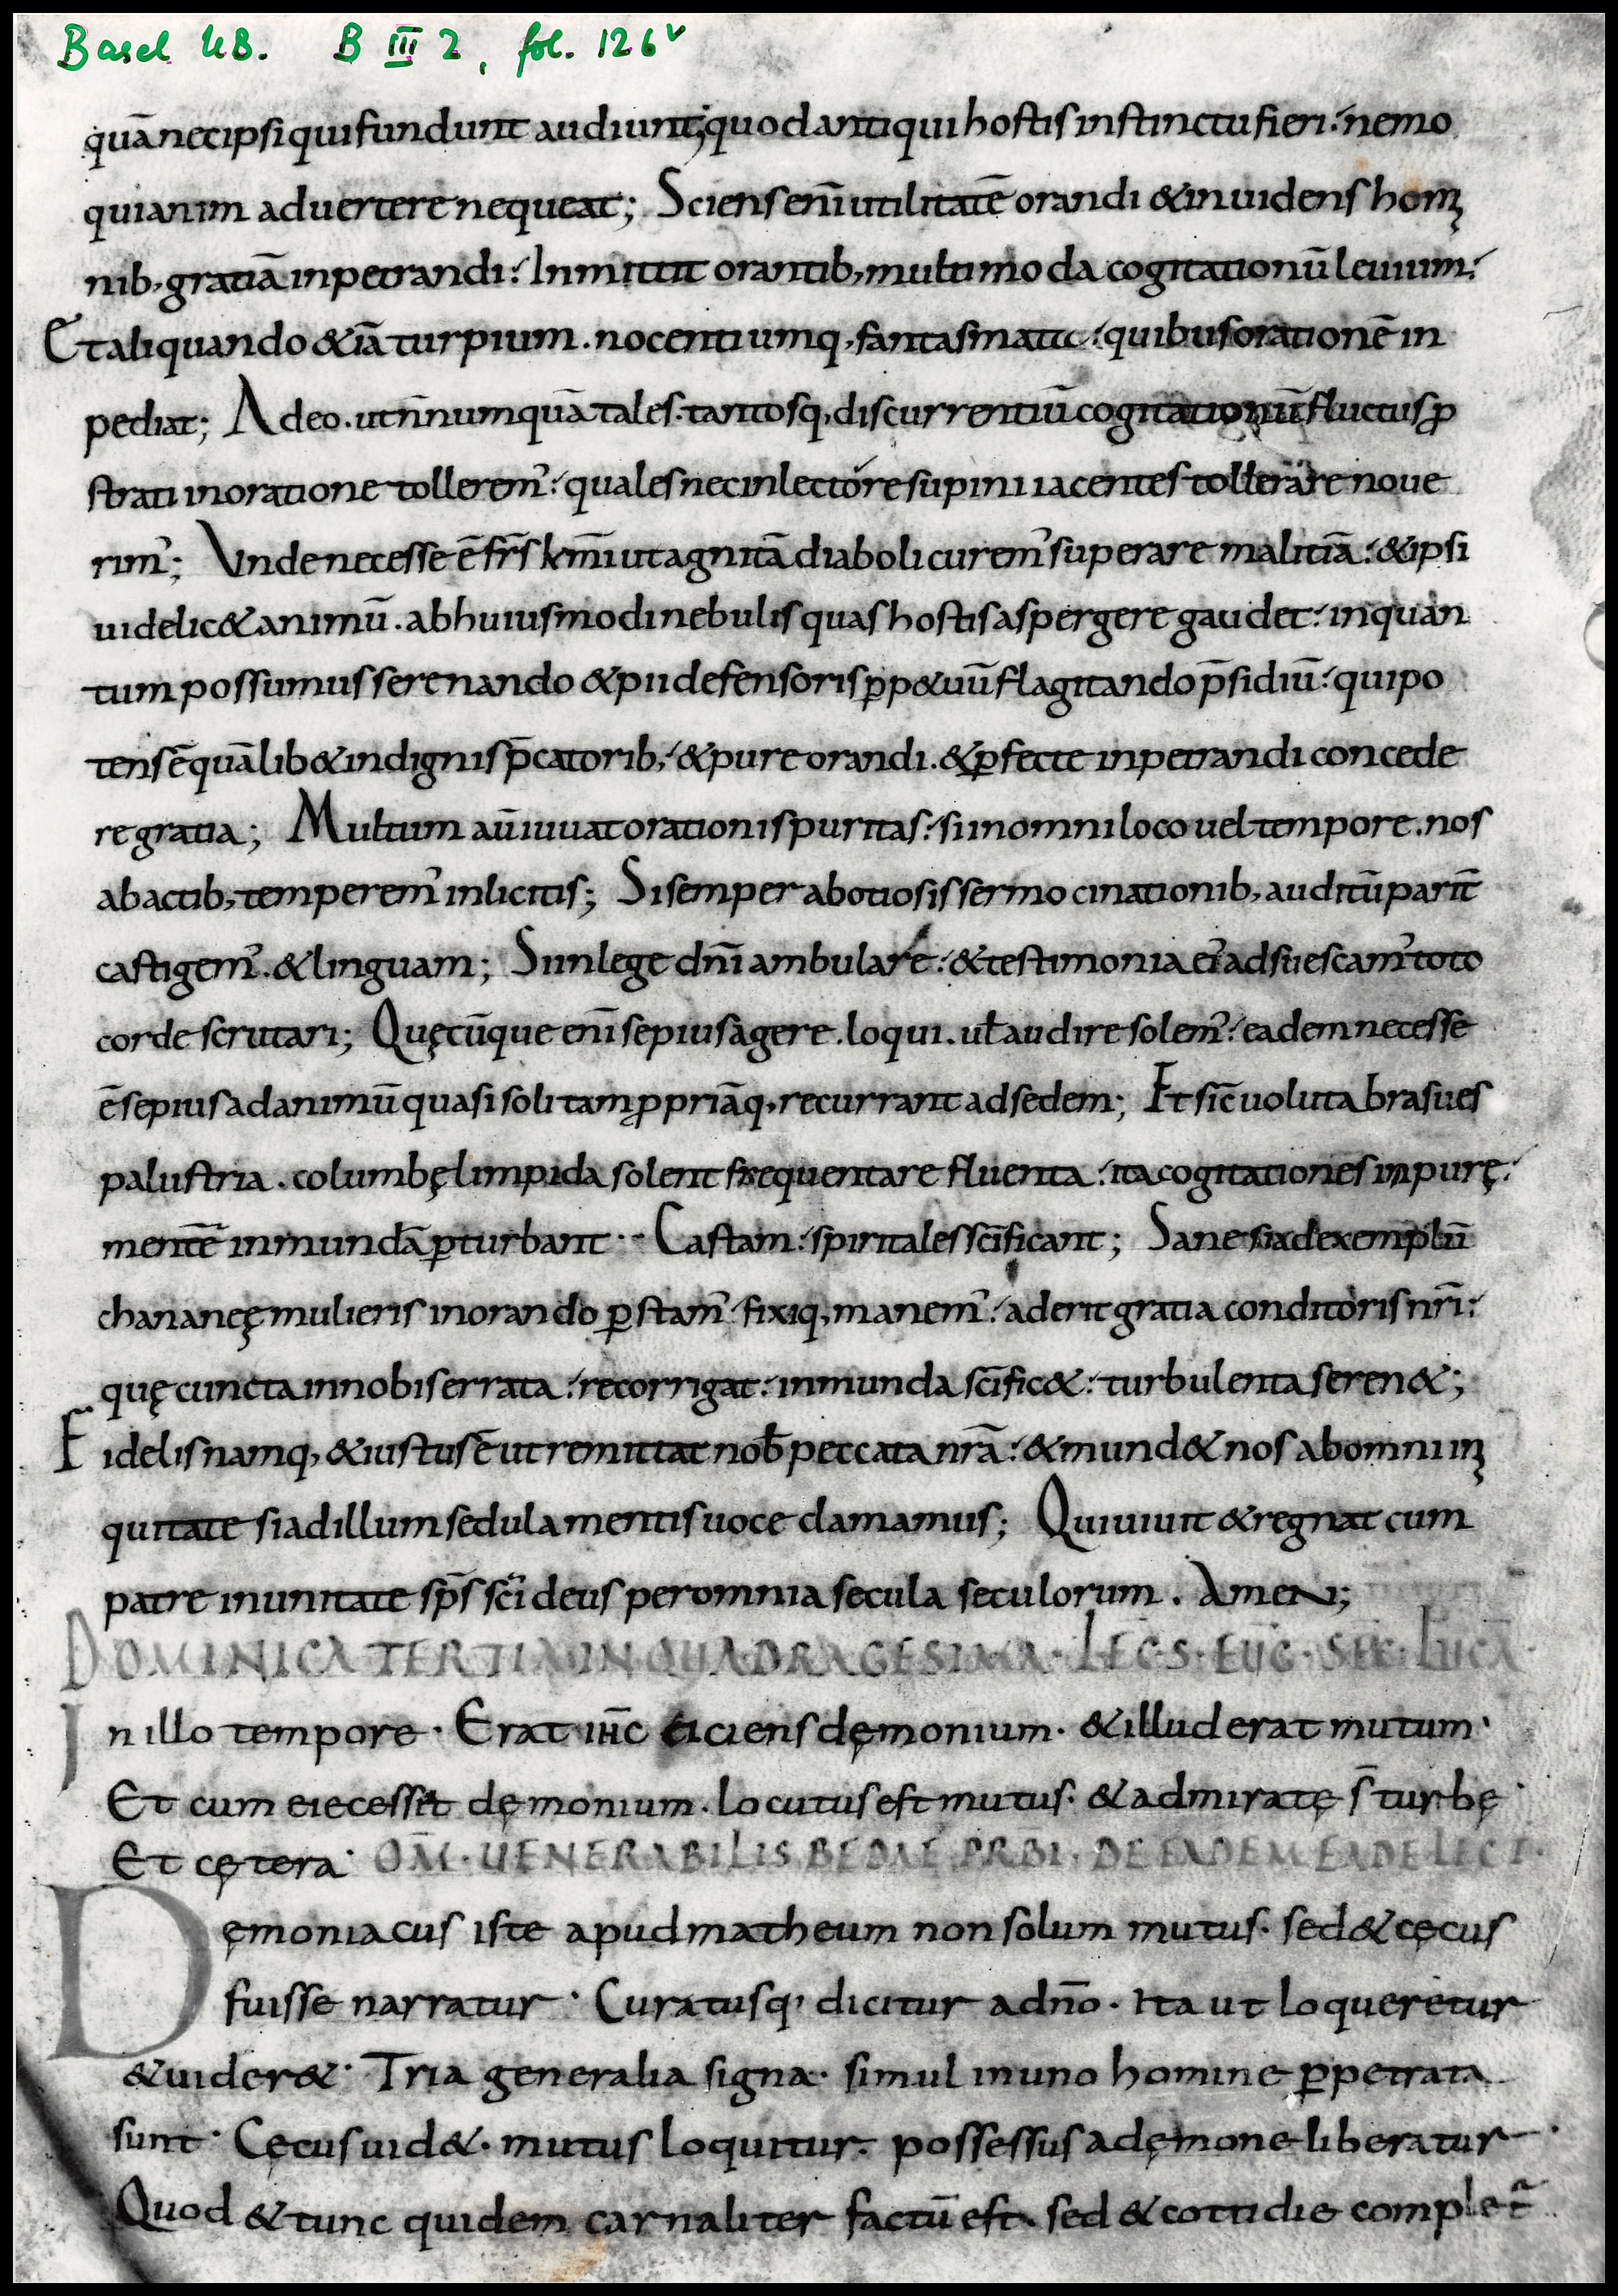 Basel UB. B III 2, fol. 126v
quā nec ipsi qui fundunt audiunt; quod antiqui hostis instinctu fieri. nemo
qui anim aduertere nequeat; Sciens enī utilitatē orandi & inuidens homi
nib, gratiā inpetrandi. Inmittit orantib, multimoda cogitationū leuium.
Et aliquando & iā turpium. nocentiumq, fantasmata. quibus orationē in
pediat; Adeo. ut nn̄umquā tales. tantosq, discurrentiū cogitationū fluctus ꝓ
strati in oratione tollerem'. quales nec in lectore supini iacentes tollerare noue
rim'; Unde necesse ē fr̄s km̄i ut agnitā diaboli curem' superare malitiā. & ipsi
uidelic& animū. ab huiusmodi nebulis quas hostis aspergere gaudet. in quan
tum possumus serenando & pii defensoris ꝑp&uū flagitando p̄sidiū. qui po
tens ē quālib& indignis p̄catorib, & pure orandi. & ꝑfecte inpetrandi concede
re gratia; Multum aūt iuuat orationis puritas. si in omni loco uel tempore. nos
ab actib, temperem' inlicitis; Si semper ab otiosis sermocinationib, auditū parit̄
castigem'. & linguam; Si in lege dn̄i ambulare. & testimonia ei' adsuescam' toto
corde scrutari; Quęcūque enī sepius agere. loqui. uł audire solem'. eadem necesse
ē sepius ad animū quasi solitam ꝓpriāq, recurrant ad sedem; Et sic̄ uolutabra sues
palustria. columbę limpida solent frequentare fluenta. ita cogitationes inpurę.
mentē inmundā ꝑturbant. Castam. spiritales scīficant; Sane si ad exemplū
chananeę mulieris in orando ꝑstam' fixiq, manem'. aderit gratia conditoris nr̄i.
quę cuncta in nobis errata. recorrigat. inmunda scīfic&. turbulenta seren&;
Fidelis namq, & iustus ē ut remittat nob̄ peccata nr̄a. & mund& nos ab omni ini
quitate si ad illum sedula mentis uoce clamamus; Qui uiuit & regnat cum
patre in unitate sp̄s scī deus per omnia secula seculorum. Amen;
DOMINICA TERTIA IN QUADRAGESIMA. LEC. S. EUG. SEC. LUCĀ.
In illo tempore. Erat ihc̄ eiciens dęmonium. & illud erat mutum.
Et cum eiecesset dęmonium. locutus est mutus. & admiratę s̄ turbę.
Et cętera. OM̄. UENERABILIS BEDAE PRBI. DE EADEM LECT.
Dęmoniacus iste apud matheum non solum mutus. sed & cęcus
fuisse narratur. Curatusq, dicitur a dn̄o. Ita ut loqueretur
& uider&. Tria generalia signa. simul in uno homine ꝑpetrata
sunt. Cęcus uid&. mutus loquitur. possessus a dęmone liberatur.
Quod & tunc quidem carnaliter factū est. sed & cottidie complet̄